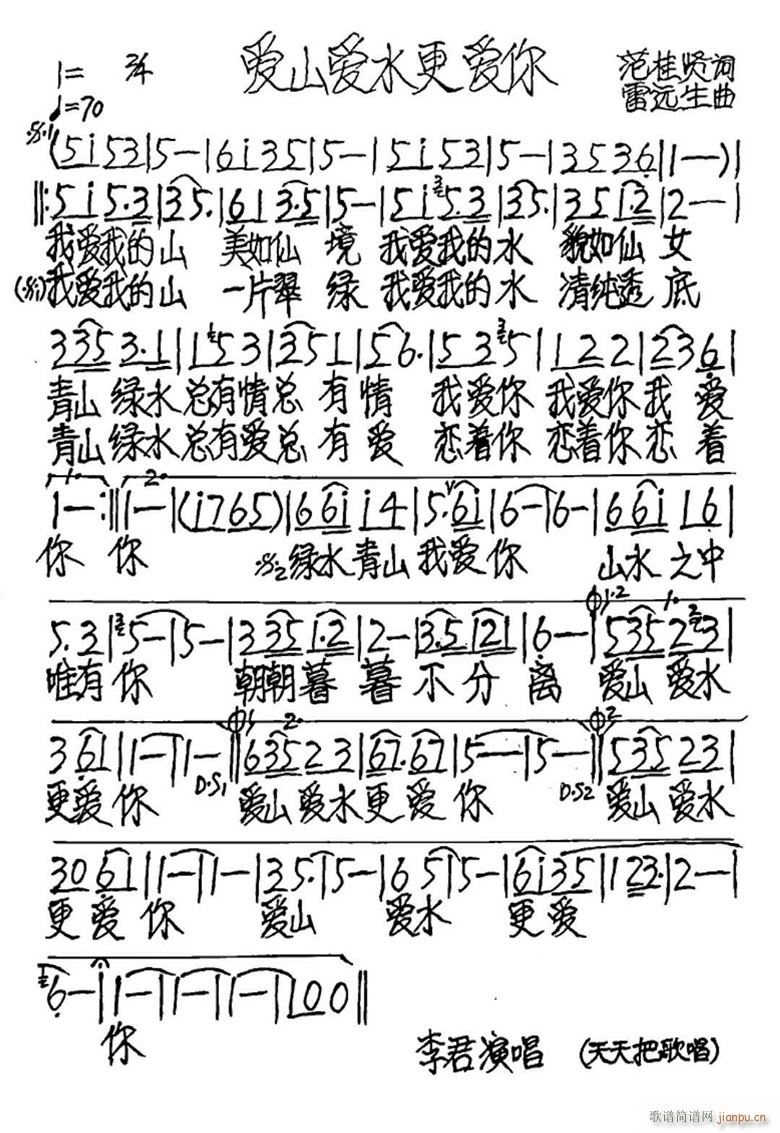 爱山爱水更爱你
1= 2/4
♩=70
范桂贤词
雷远生曲
(5i53|5—|6i35|5—|5i53|5—|3536|1—)|
||:5i5·3|35·|61 3·5|5—|5i5·3|35·|351·2|2—|
我爱我的山 美如仙 境 我爱我的水 貌如仙 女
我爱我的山 一片翠 绿 我爱我的水 清纯透 底
335 3·1|1 53|351|56·|535|122|236|
青山 绿水总有情总 有情 我爱你 我爱你我 爱
青山 绿水总有爱总 有爱 恋着你 恋着你恋 着
1. 2.
1—:||1—|(i765)|66i i4|5·6i|6—|6—|66i i6|
你 你 绿水青山我爱你 山水之中
5·3|5—|5—|335 1·2|2—|3·5 121|6—|535 23|
唯有你 朝朝暮 暮 不 分 离 爱山 爱水
3 61|1—|1—||635 23|67·67|5—|5—||535 23|
更爱你 D.S1 爱山 爱水更 爱 你 D.S2 爱山 爱水
30 61|1—|1—|35·|5—|65|5—|6i35|123·|2—|
更 爱 你 爱山 爱水 更爱
6—i|i—|i—|i—|i00||
你
李君演唱 (天天把歌唱)
歌谱简谱网 jianpu.cn